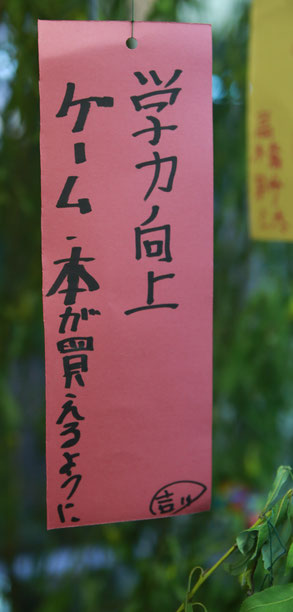 学力向上
ゲーム・本が買えるように
吉川